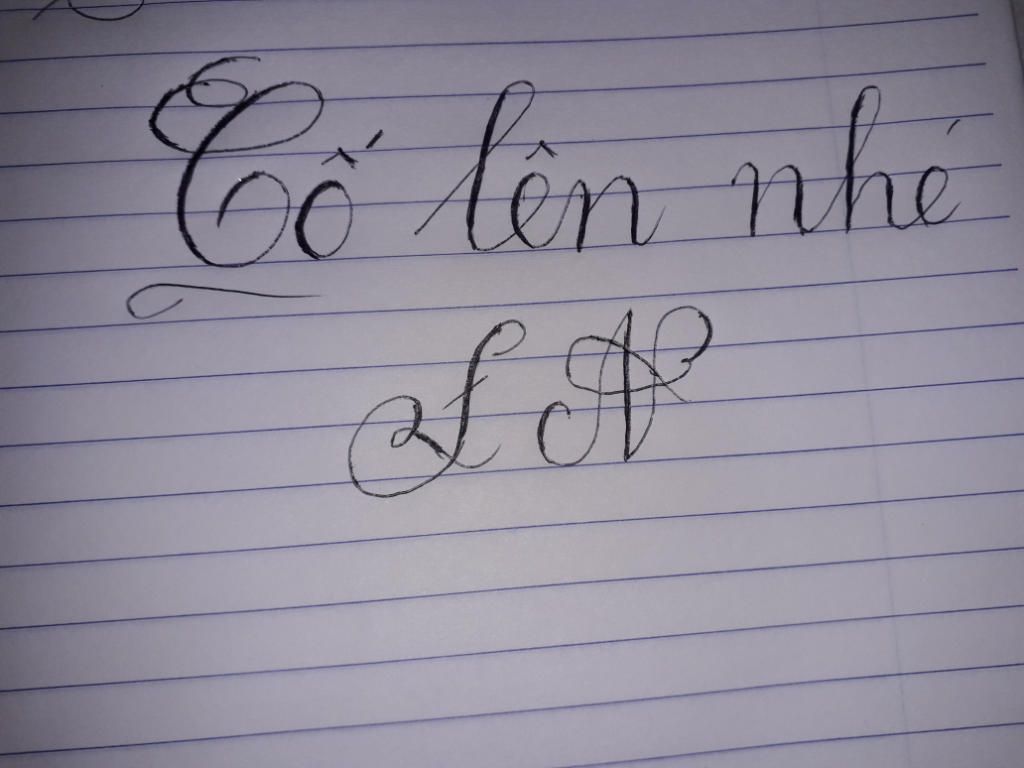 Cố lên nhé
LA